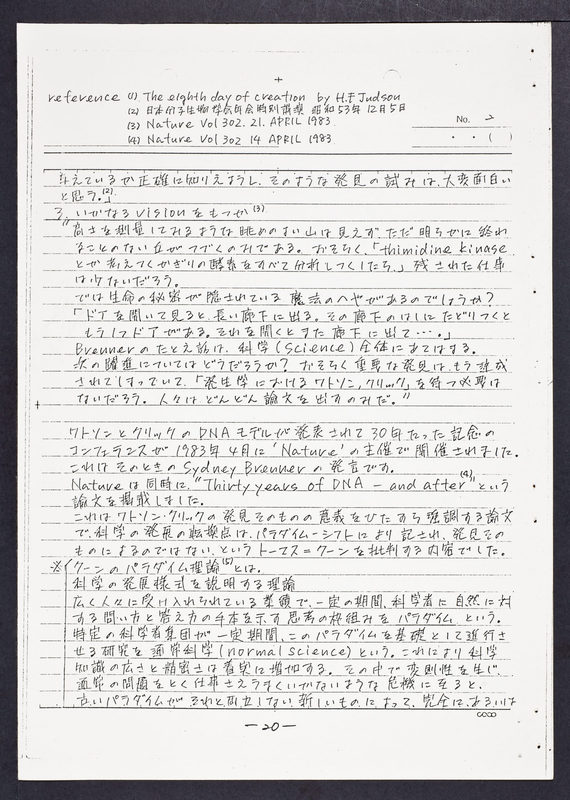 reference (1) The eighth day of creation by H.F Judson
(2) 日本分子生物学会年会特別講演 昭和53年12月5日
(3) Nature Vol 302. 21. APRIL 1983
(4) Nature Vol 302 14 APRIL 1983
No. 2
・ ・ ( )
与えているか正確に知りえようし、そのような発見の試みは、大変面白い
と思う。(2)」
3. いかなるvisionをもつか(3)
"高さを測量してみるような眺めのよい山は見えず、ただ明らかに終わ
ることのない丘がつづくのみである。おそらく、「thimidine kinase
とか考えつくかぎりの酵素をすべて分析しつくしたら、」残された仕事
は少ないだろう。
では生命の秘密が隠されている魔法のヘヤがあるのでしょうか?
「ドアを開いて見ると、長い廊下に出る。その廊下のはしにたどりつくと
もう1つドアがある。それを開くとまた廊下に出て…。」
Brennerのたとえ話は、科学(Science)全体にあてはまる。
次の躍進についてはどうだろうか? おそらく重要な発見は、もう達成
されてしまっていて、「発生学におけるワトソン,クリック」を待つ必要は
ないだろう。人々はどんどん論文を出すのみだ。"
ワトソンとクリックのDNAモデルが発表されて30年たった記念の
コンファランスが1983年4月に'Nature'の主催で開催されました。
これはそのときのSydney Brennerの発言です。
Natureは同時に"Thirty years of DNA - and after"(4)という
論文を掲載しました。
これはワトソン・クリックの発見そのものの意義をひたすら強調する論文
で、科学の発展の転換点は、パラダイム-シフトにより記され、発見その
ものによるのではない、というトーマス=クーンを批判する内容でした。
※ クーンのパラダイム理論(5)とは。
科学の発展様式を説明する理論
広く人々に受け入れられている業績で、一定の期間、科学者に自然に対
する問い方と答え方の手本を示す思考の枠組みをパラダイムという。
特定の科学者集団が一定期間、このパラダイムを基礎として進行さ
せる研究を通常科学(normal science)という。これにより科学
知識の広さと精密さは着実に増加する。その中で変則性を生じ、
通常の問題をとく仕事さえうまくいかないような危機に至ると、
古いパラダイムがそれと両立しない新しいものによって、完全に、あるいは
-20-